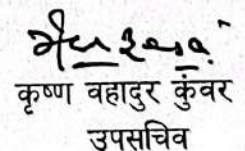 कृष्ण वहादुर कुंवर
उपसचिव